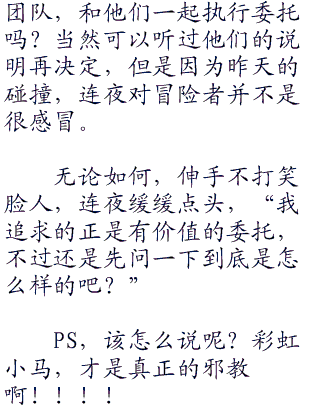 团队，和他们一起执行委托
吗？当然可以听过他们的说
明再决定，但是因为昨天的
碰撞，连夜对冒险者并不是
很感冒。
无论如何，伸手不打笑
脸人，连夜缓缓点头，“我
追求的正是有价值的委托，
不过还是先问一下到底是怎
么样的吧？”
PS，该怎么说呢？彩虹
小马，才是真正的邪教
啊！！！！